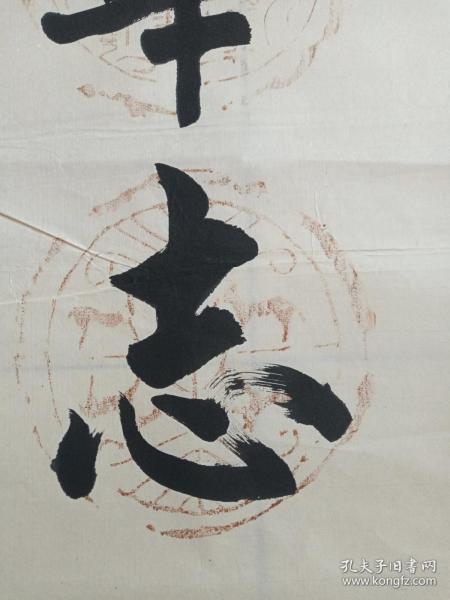 志
孔夫子旧书网
www.kongfz.com